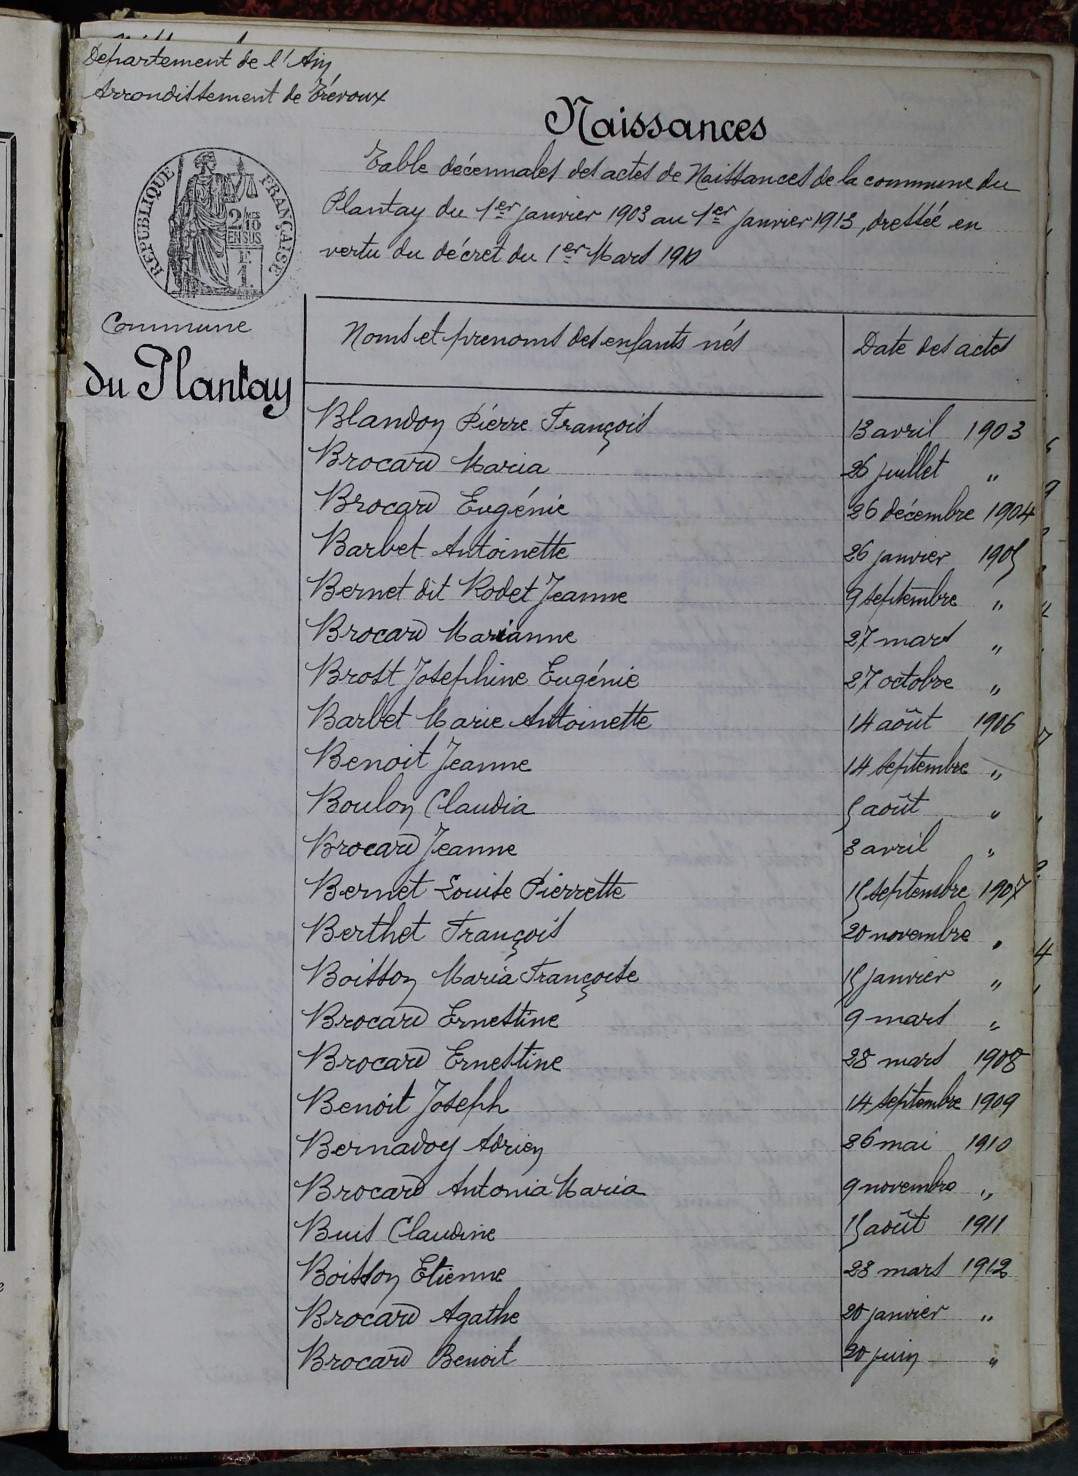 Département de l'Ain
Arrondissement de Trévoux
Naissances
Table décennales des actes de Naissances de la commune du
Plantay du 1er janvier 1903 au 1er janvier 1913, dressée en
vertu du décret du 1er Mars 1910
RÉPUBLIQUE FRANÇAISE
2/10
EN SUS
F
1
Commune
du Plantay
Noms et prenoms des enfants nés
Date des actes
Blandon Pierre François 13 avril 1903
Brocard Maria 26 juillet "
Brocard Eugénie 26 décembre 1904
Barbet Antoinette 26 janvier 1905
Bernet dit Rodet Jeanne 9 septembre "
Brocard Marianne 27 mars "
Brost Joséphine Eugénie 27 octobre "
Barbet Marie Antoinette 14 août 1906
Benoit Jeanne 14 septembre "
Boulon Claudia 5 août "
Brocard Jeanne 3 avril "
Bernet Louise Pierrette 15 septembre 1907
Berthet François 20 novembre "
Boisson Maria Françoise 15 janvier "
Brocard Ernestine 9 mars "
Brocard Ernestine 28 mars 1908
Benoit Joseph 14 septembre 1909
Bernadoy Adrien 26 mai 1910
Brocard Antonia Maria 9 novembre "
Buis Claudine 15 août 1911
Boisson Etienne 28 mars 1912
Brocard Agathe 20 janvier "
Brocard Benoit 20 juin "